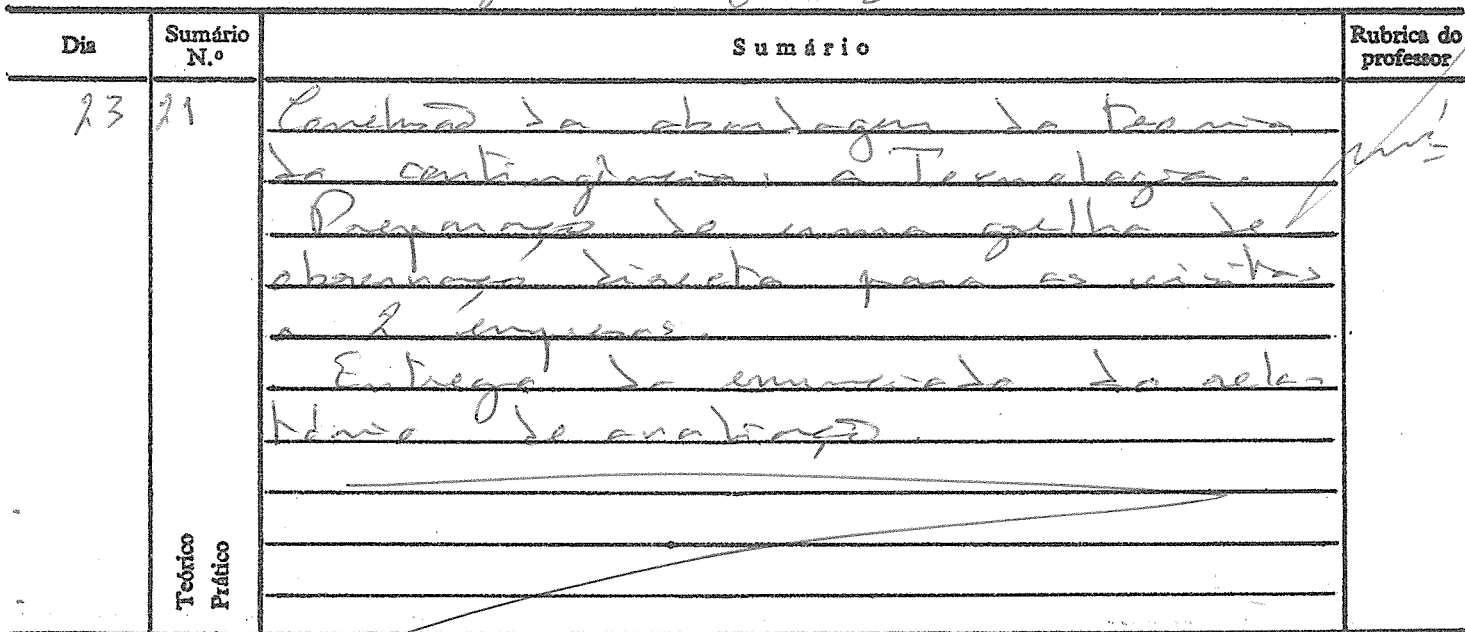 Dia Sumário N.º Sumário Rubrica do professor
23 21 Conclusão da abordagem da teoria
da contingência: a Tecnologia.
Preparação de uma grelha de
observação directa para as visitas
a 2 empresas.
Entrega do enunciado do rela-
tório de avaliação.
Teórico
Prático